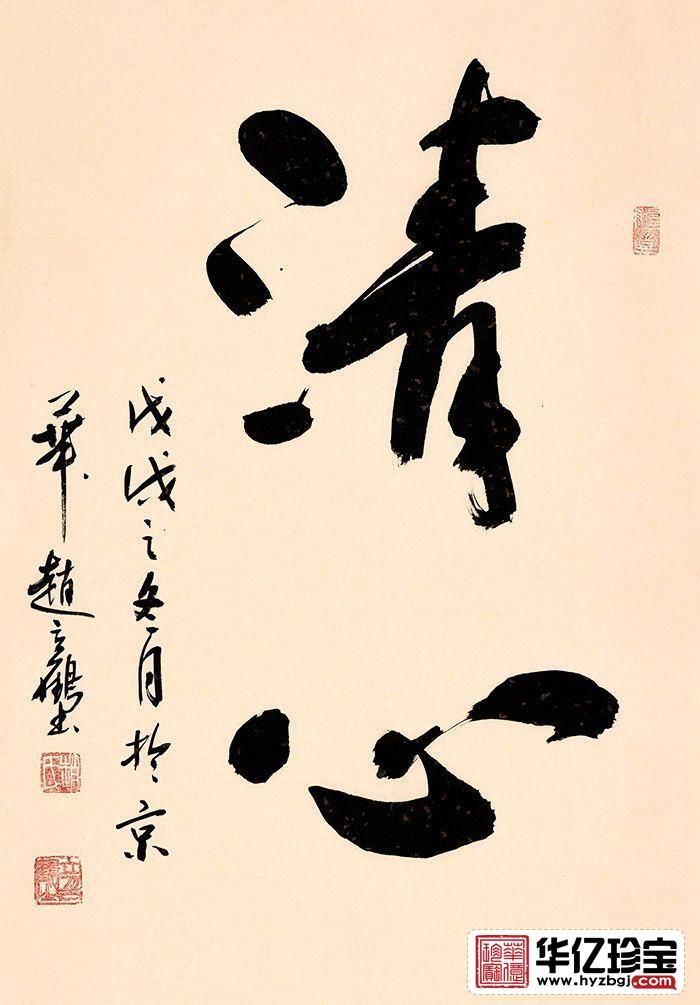 清心
戊戌之冬月於京
華趙立鶴書
华亿珍宝
www.hyzbgj.com